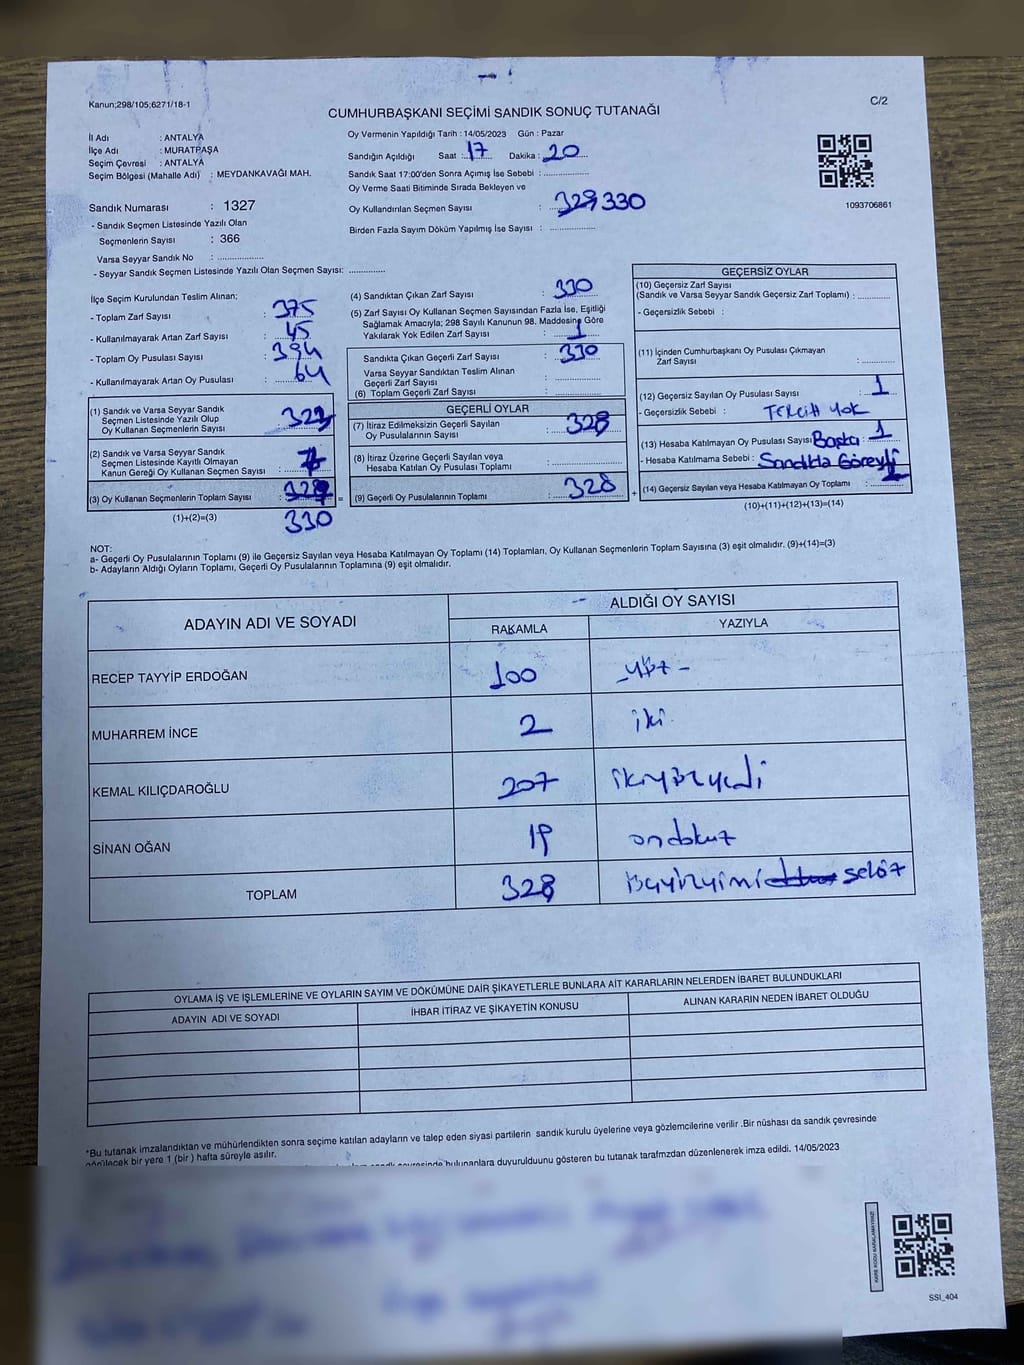 Kanun;298/105;6271/18-1
C/2
CUMHURBAŞKANI SEÇİMİ SANDIK SONUÇ TUTANAĞI
İl Adı : ANTALYA
İlçe Adı : MURATPAŞA
Seçim Çevresi : ANTALYA
Seçim Bölgesi (Mahalle Adı) : MEYDANKAVAĞI MAH.
Sandık Numarası : 1327
- Sandık Seçmen Listesinde Yazılı Olan
Seçmenlerin Sayısı : 366
Varsa Seyyar Sandık No : ..................
- Seyyar Sandık Seçmen Listesinde Yazılı Olan Seçmen Sayısı: ..............
Oy Vermenin Yapıldığı Tarih : 14/05/2023 Gün : Pazar
Sandığın Açıldığı Saat : 17 Dakika : 20
Sandık Saat 17:00'den Sonra Açımış İse Sebebi : ..................
Oy Verme Saati Bitiminde Sırada Bekleyen ve
Oy Kullandırılan Seçmen Sayısı : 329 330
Birden Fazla Sayım Döküm Yapılmış İse Sayısı : ..................
1093706861
İlçe Seçim Kurulundan Teslim Alınan;
- Toplam Zarf Sayısı : 375
- Kullanılmayarak Artan Zarf Sayısı : 45
- Toplam Oy Pusulası Sayısı : 394
- Kullanılmayarak Artan Oy Pusulası : 64
(1) Sandık ve Varsa Seyyar Sandık
Seçmen Listesinde Yazılı Olup
Oy Kullanan Seçmenlerin Sayısı :
(2) Sandık ve Varsa Seyyar Sandık
Seçmen Listesinde Kayıtlı Olmayan
Kanun Gereği Oy Kullanan Seçmen Sayısı :
(3) Oy Kullanan Seçmenlerin Toplam Sayısı :
(1)+(2)=(3)
330
=
(4) Sandıktan Çıkan Zarf Sayısı : 330
(5) Zarf Sayısı Oy Kullanan Seçmen Sayısından Fazla İse, Eşitliği
Sağlamak Amacıyla; 298 Sayılı Kanunun 98. Maddesine Göre
Yakılarak Yok Edilen Zarf Sayısı : 1
Sandıkta Çıkan Geçerli Zarf Sayısı : 330
Varsa Seyyar Sandıktan Teslim Alınan
Geçerli Zarf Sayısı : ..................
(6) Toplam Geçerli Zarf Sayısı : ..................
GEÇERLİ OYLAR
(7) İtiraz Edilmeksizin Geçerli Sayılan
Oy Pusulalarının Sayısı : 328
(8) İtiraz Üzerine Geçerli Sayılan veya
Hesaba Katılan Oy Pusulası Toplamı : ..................
(9) Geçerli Oy Pusulalarının Toplamı : 328
+
GEÇERSİZ OYLAR
(10) Geçersiz Zarf Sayısı
(Sandık ve Varsa Seyyar Sandık Geçersiz Zarf Toplamı) : ............
- Geçersizlik Sebebi :
(11) İçinden Cumhurbaşkanı Oy Pusulası Çıkmayan
Zarf Sayısı : ............
(12) Geçersiz Sayılan Oy Pusulası Sayısı : 1
- Geçersizlik Sebebi : TERCİH YOK
(13) Hesaba Katılmayan Oy Pusulası Sayısı Başka : 1
- Hesaba Katılmama Sebebi : Sandıkta Görevli
(14) Geçersiz Sayılan veya Hesaba Katılmayan Oy Toplamı :
(10)+(11)+(12)+(13)=(14)
NOT:
a- Geçerli Oy Pusulalarının Toplamı (9) ile Geçersiz Sayılan veya Hesaba Katılmayan Oy Toplamı (14) Toplamları, Oy Kullanan Seçmenlerin Toplam Sayısına (3) eşit olmalıdır. (9)+(14)=(3)
b- Adayların Aldığı Oyların Toplamı, Geçerli Oy Pusulalarının Toplamına (9) eşit olmalıdır.
ADAYIN ADI VE SOYADI
ALDIĞI OY SAYISI
RAKAMLA YAZIYLA
RECEP TAYYİP ERDOĞAN 100 - yüz -
MUHARREM İNCE 2 iki
KEMAL KILIÇDAROĞLU 207 ikiyüzyedi
SİNAN OĞAN 19 ondokuz
TOPLAM 328 üçyüzyirmi sekiz
OYLAMA İŞ VE İŞLEMLERİNE VE OYLARIN SAYIM VE DÖKÜMÜNE DAİR ŞİKAYETLERLE BUNLARA AİT KARARLARIN NELERDEN İBARET BULUNDUKLARI
ADAYIN ADI VE SOYADI İHBAR İTİRAZ VE ŞİKAYETİN KONUSU ALINAN KARARIN NEDEN İBARET OLDUĞU
*Bu tutanak imzalandıktan ve mühürlendikten sonra seçime katılan adayların ve talep eden siyasi partilerin sandık kurulu üyelerine veya gözlemcilerine verilir .Bir nüshası da sandık çevresinde
görülecek bir yere 1 (bir ) hafta süreyle asılır.
bulunanlara duyurulduunu gösteren bu tutanak tarafmzdan düzenlenerek imza edildi. 14/05/2023
KARE KODU KARALAMAYINIZ
SSI_404